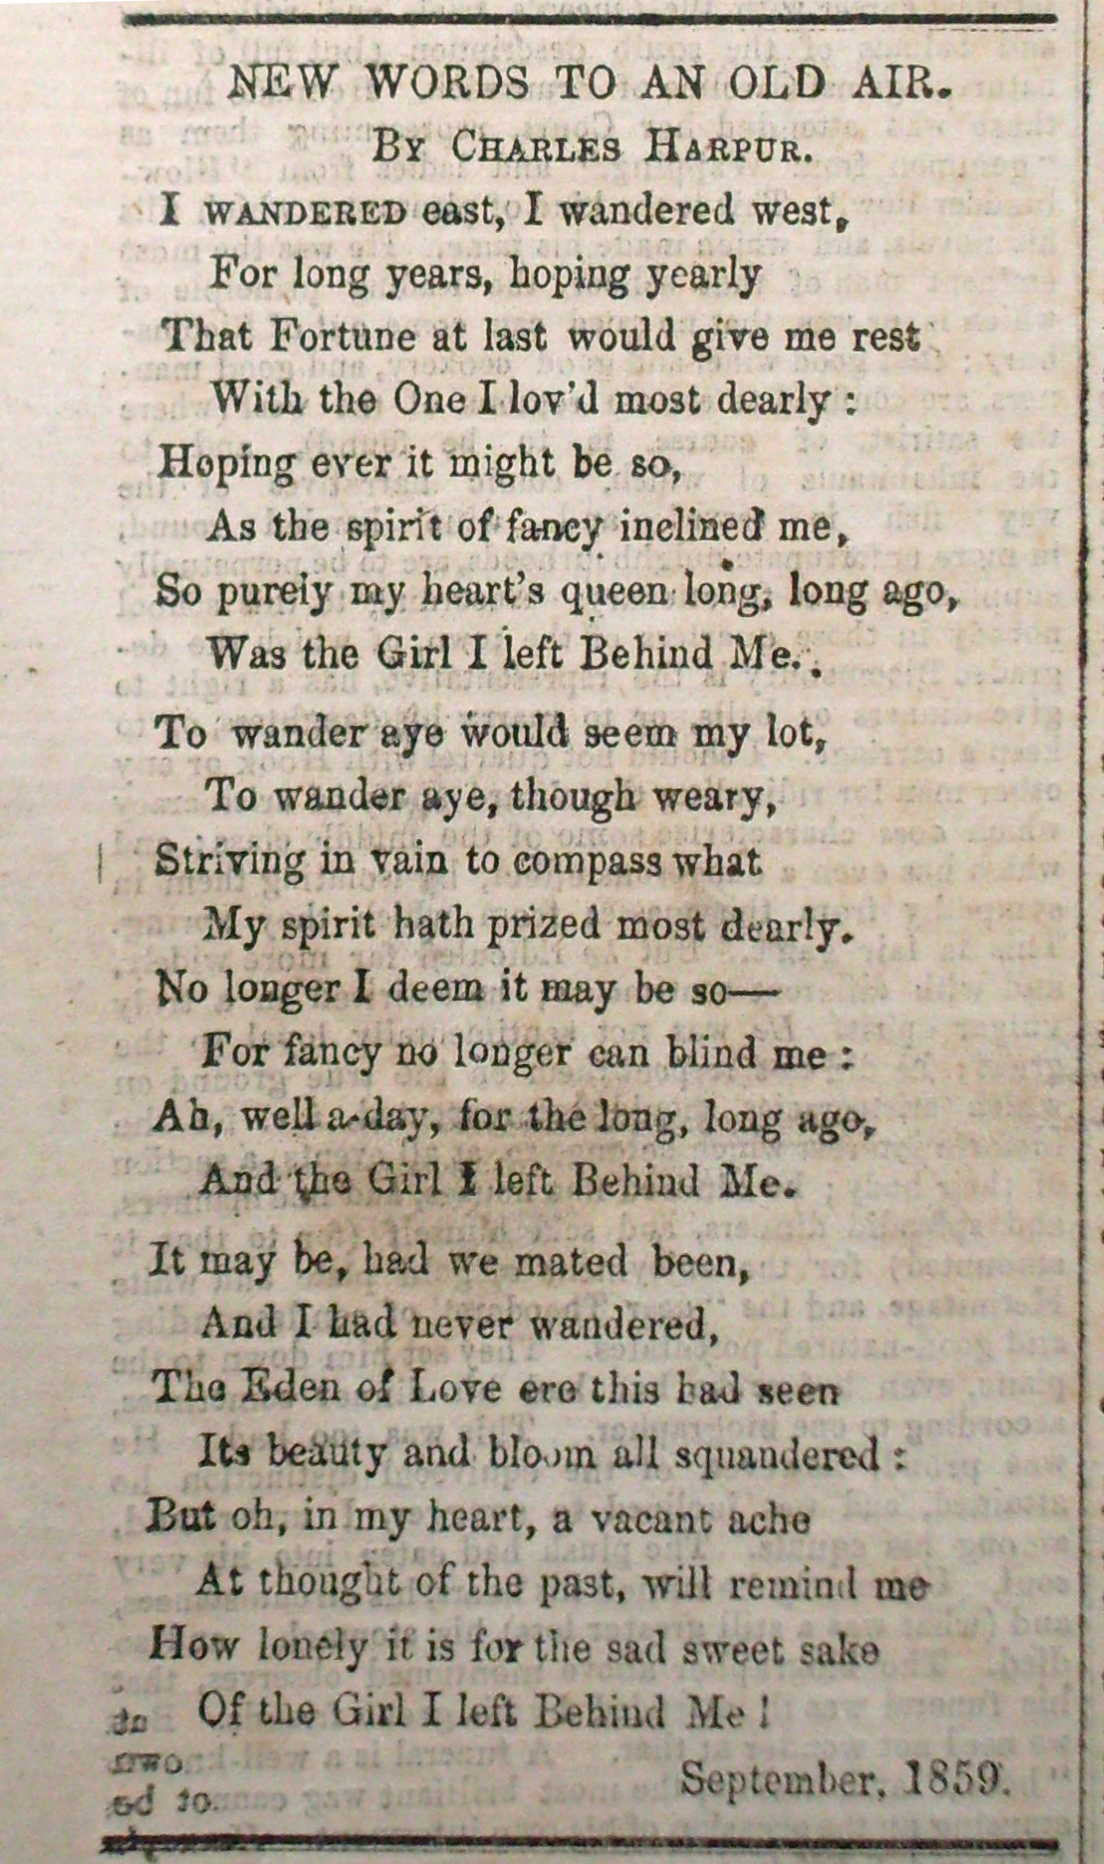 NEW WORDS TO AN OLD AIR.
By Charles Harpur.
I WANDERED east, I wandered west,
For long years, hoping yearly
That Fortune at last would give me rest
With the One I lov'd most dearly :
Hoping ever it might be so,
As the spirit of fancy inclined me,
So purely my heart's queen long, long ago,
Was the Girl I left Behind Me.
To wander aye would seem my lot,
To wander aye, though weary,
Striving in vain to compass what
My spirit hath prized most dearly.
No longer I deem it may be so—
For fancy no longer can blind me :
Ah, well a-day, for the long, long ago,
And the Girl I left Behind Me.
It may be, had we mated been,
And I had never wandered,
The Eden of Love ere this had seen
Its beauty and bloom all squandered :
But oh, in my heart, a vacant ache
At thought of the past, will remind me
How lonely it is for the sad sweet sake
Of the Girl I left Behind Me !
September, 1859.